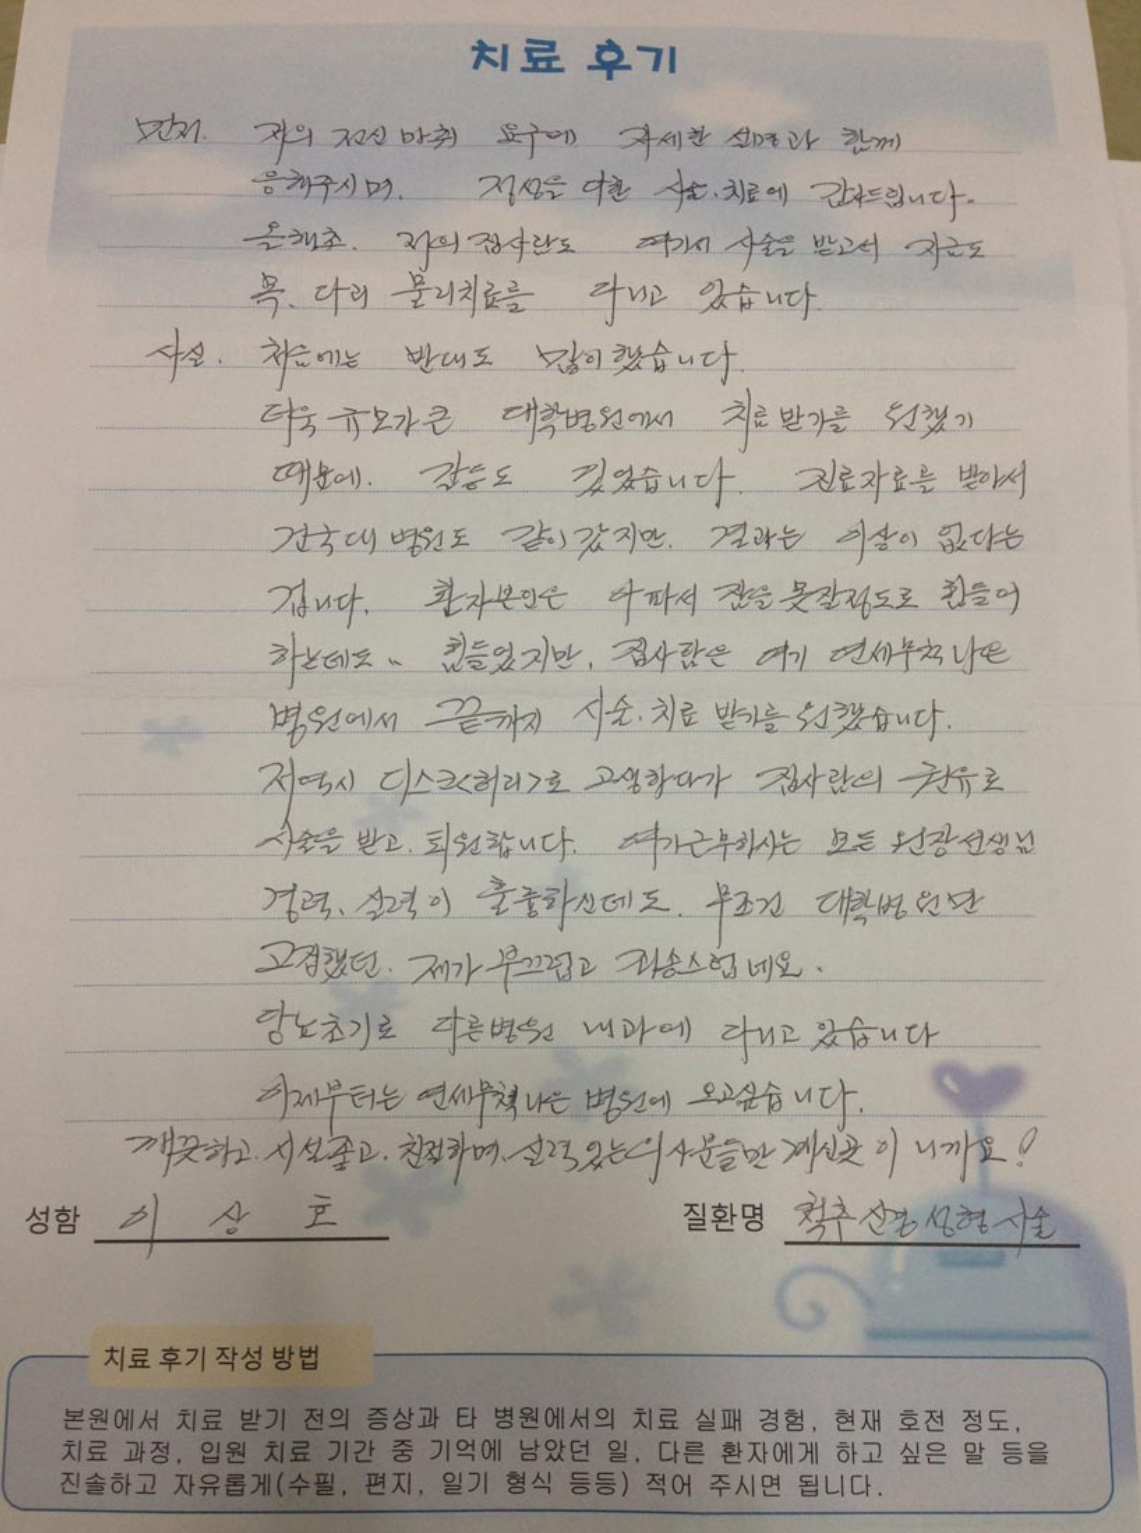 치료 후기
먼저. 저의 전신마취 요구에 자세한 설명과 함께
응해주시며. 정성을 다한 시술.치료에 감사드립니다.
올해초. 저의 집사람도 여기서 시술을 받고서 지금도
목, 다리 물리치료를 다니고 있습니다.
사실. 처음에는 반대도 많이했습니다.
더욱 규모가큰 대학병원에서 치료받기를 원했기
때문에. 갈등도 있었습니다. 진료자료를 받아서
건국대 병원도 같이갔지만. 결과는 이상이 없다는
겁니다. 환자본인은 아파서 잠을못잘정도로 힘들어
하는데도.. 힘들었지만, 집사람은 여기 연세무척나은
병원에서 끝까지 시술.치료 받기를 원했습니다.
저역시 디스크<허리>로 고생하다가 집사람의 권유로
시술을 받고. 퇴원합니다. 여기근무하시는 모든 원장선생님
경력, 실력이 훌륭하신데도. 무조건 대학병원만
고집했던. 제가 부끄럽고 죄송스럽네요.
당뇨초기로 다른병원 내과에 다니고 있습니다
이제부터는 연세무척나은 병원에 오고싶습니다.
깨끗하고.시설좋고.친절하며.실력있는의사분들만 계신곳이니까요!
성함 이 상 호 질환명 척추신경성형시술
치료 후기 작성 방법
본원에서 치료 받기 전의 증상과 타 병원에서의 치료 실패 경험, 현재 호전 정도,
치료 과정, 입원 치료 기간 중 기억에 남았던 일, 다른 환자에게 하고 싶은 말 등을
진솔하고 자유롭게(수필, 편지, 일기 형식 등등) 적어 주시면 됩니다.